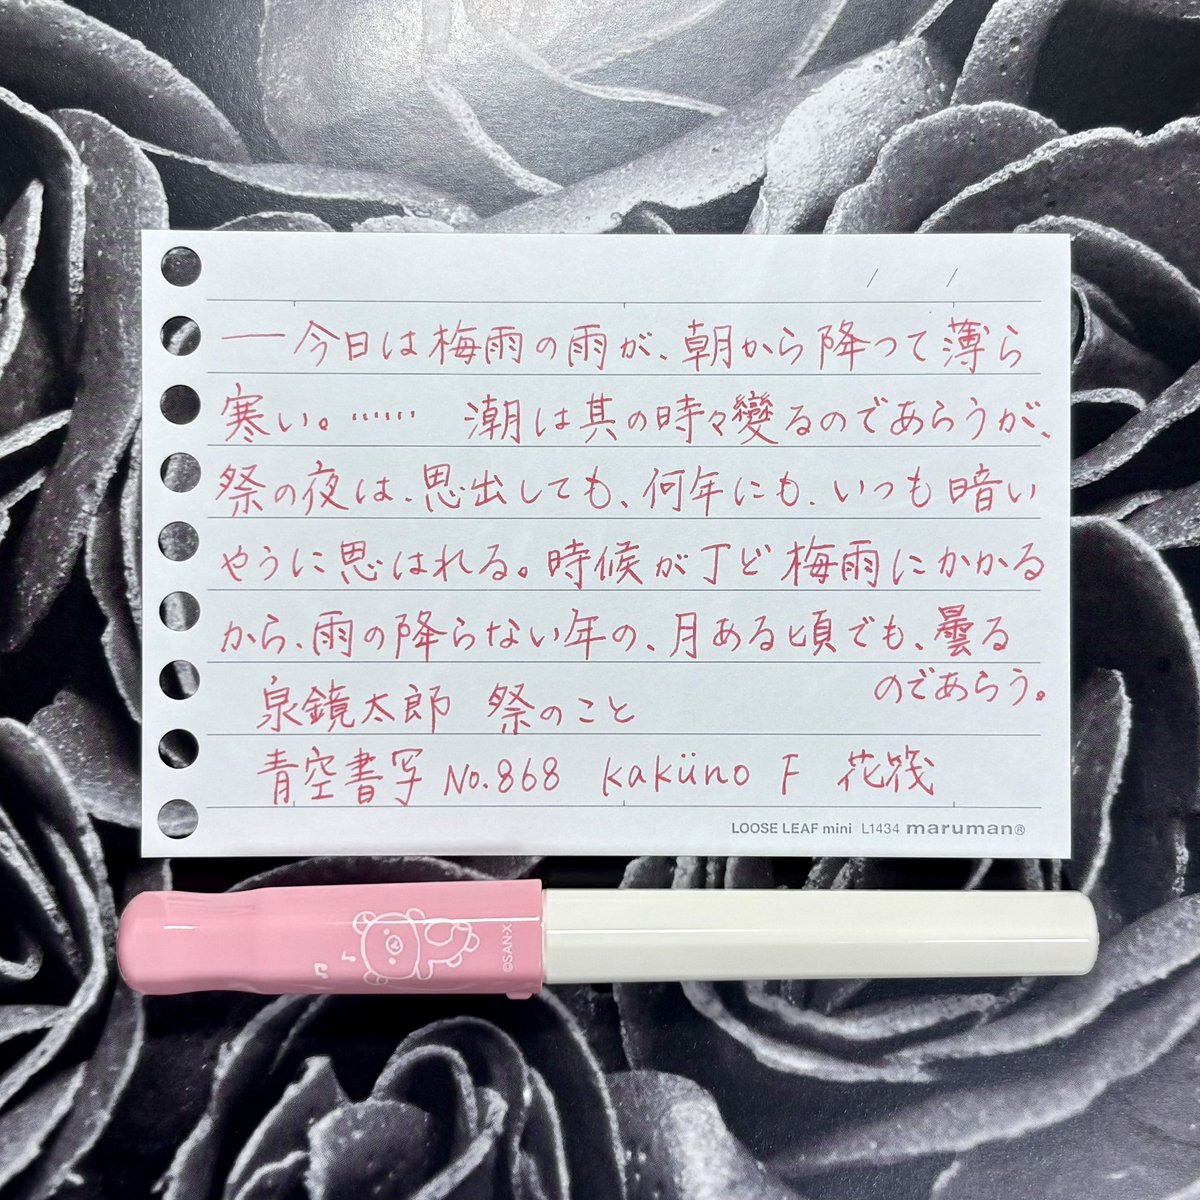 ―今日は梅雨の雨が、朝から降つて薄ら
寒い。…… 潮は其の時々變るのであらうが、
祭の夜は、思出しても、何年にも、いつも暗い
やうに思はれる。時候が丁ど梅雨にかかる
から、雨の降らない年の、月ある頃でも、曇る
のであらう。
泉鏡太郎 祭のこと
青空書写 No.868 kaküno F 花筏
LOOSE LEAF mini L1434 maruman®
©SAN-X